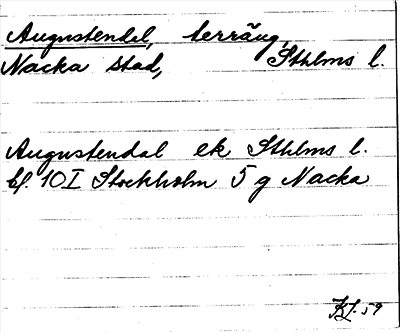 Augustendal, terräng,
Nacka stad, Sthlms l.
Augustendal ek Sthlms l.
bl. 10 I Stockholm 5 g Nacka
59